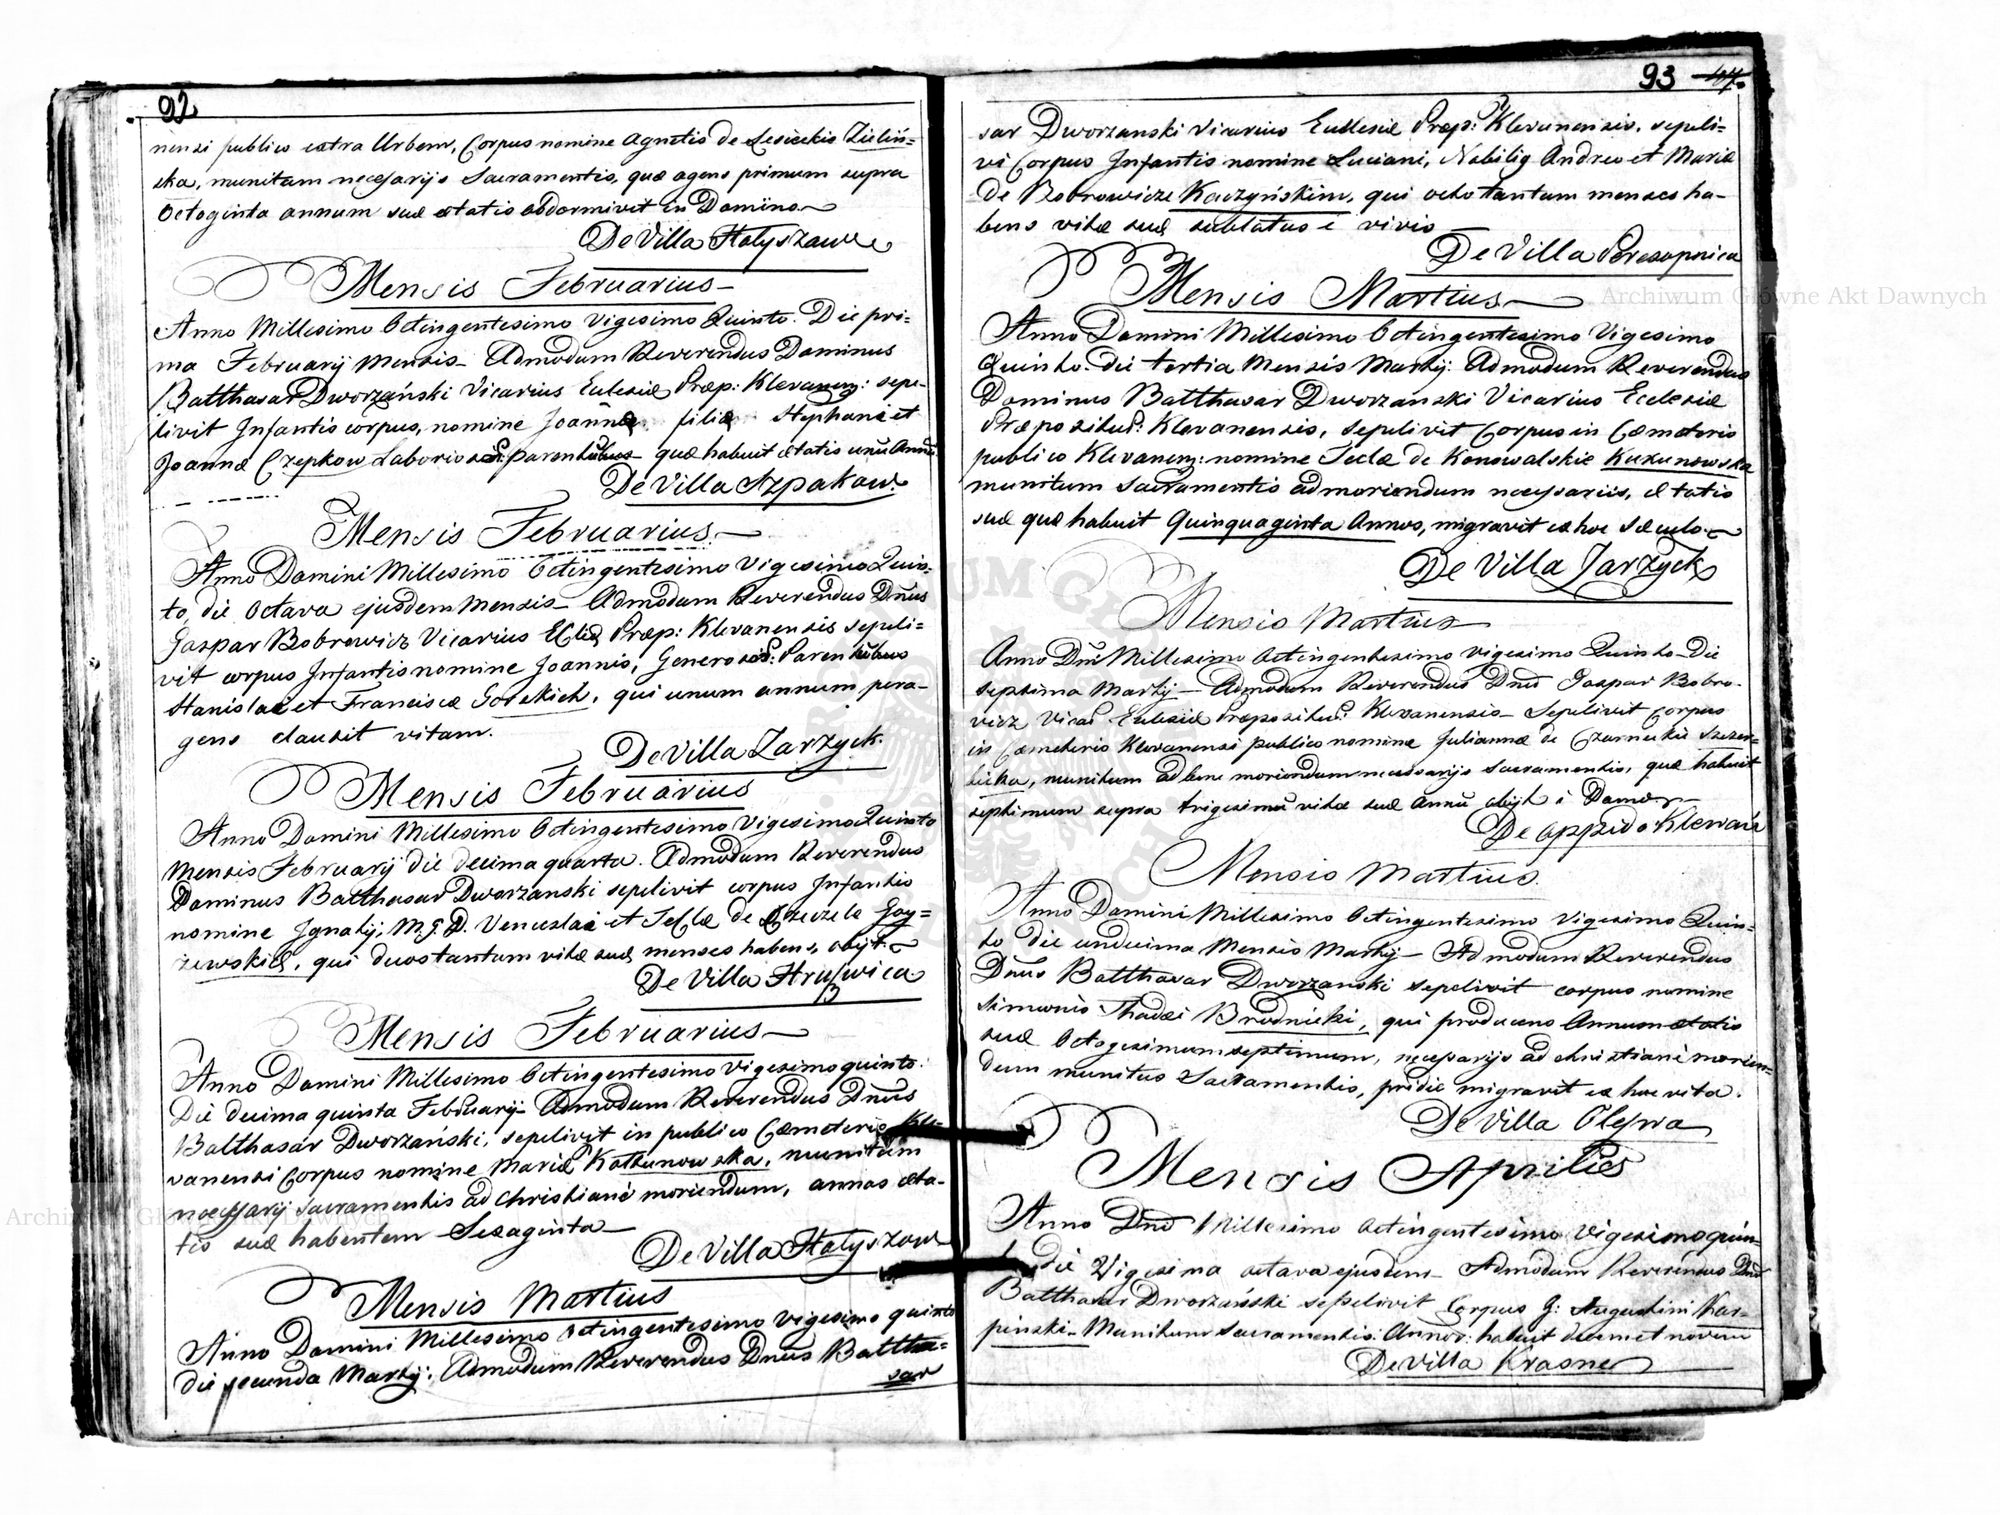 92
nensi publico extra Urbem, Corpus nomine Agnetis de Lesieckie Zieliń=
ska, munitam necessarijs Sacramentis, quæ agens primum supra
Octoginta annum suæ ætatis obdormivit in Domino
De Villa Hołyszowie
Mensis Februarius
Anno Millesimo Octingentesimo Vigesimo Quinto. Die pri=
ma Februarij Mensis Admodum Reverendus Dominus
Balthasar Dworzański Vicarius Eclesiæ Præp: Klevanen: sepe-
livit Infantis corpus, nomine Joannæ filiæ Stephani et
Joannæ Czepkow Laborios: Parentibus quæ habuit ætatis unū Annū
De Villa Szpakow.
Mensis Februarius
Anno Domini Millesimo Octingentesimo Vigesimo Quin-
to, die Octava ejusdem Mensis Admodum Reverendus Dñus
Gaspar Bobrowicz Vicarius Præp: Klevanensis sepeli=
vit corpus Infantis nomine Joannis, Generos: Parentibus
Stanislai et Franciscæ Gorskich, qui unum annum pera-
gens clausit vitam.
De Villa Zarzyck.
Mensis Februarius
Anno Domini Millesimo Octingentesimo Vigesimo Quinto
Mensis Februarij die decima quarta. Admodum Reverendus
Dominus Balthasar Dworzanski sepelivit corpus Infantis
nomine Ignatij, M.G.D. Venceslai et Teclæ de Gay=
zewskich, qui duos tantum vitæ suæ menses habens, obijt.
De Villa Hruszwica
Mensis Februarius
Anno Domini Millesimo Octingentesimo Vigesimo quinto.
Die decima quinta Februarij Admodum Reverendus Dñus
Balthasar Dworzański, sepelivit in publico Cæmeterio Kle-
vanensi Corpus nomine Mariæ Kothunowska, munitam
necessarij sacramentis ad christianè moriendum, annos æta-
tis suæ habentem Sexaginta
De Villa Hołyszow
Mensis Martius
Anno Domini Millesimo Octingentesimo vigesimo quinto
die secunda Martij: Admodum Reverendus Dñus Baltha=
sar
93
sar Dworzanski Vicarius Ecclesiæ Præp: Klevanensis, sepeli=
vi Corpus Infantis nomine Luciani, Nobiliū Andreæ et Mariæ
de Bobrowicze Kaczyńskim, qui octo tantum menses ha-
bens vitæ suæ sublatus è vivis
De Villa Peresopnica
Mensis Martius
Anno Domini Millesimo Octingentesimo Vigesimo
Quinto. die tertia Mensis Martij: Admodum Reverendus
Dominus Balthasar Dworzanski Vicarius Ecclesiæ
Præposituæ: Klevanensis, sepelivit Corpus in Cæmeterio
publico Klevanen: nomine Teclæ de Konowalskie Kuxunowska
munitum Sacramentis ad moriendum necessariis, ætatis
suæ quæ habuit Quinquaginta Annos, migravit ex hoc Sæculo.
De Villa Zarzyck
Mensis Martius
Anno Dñi Millesimo Octingentesimo Vigesimo Quinto Die
septima Martij Admodum Reverendus Dñus Gaspar Bobro-
wicz Vicar Eclesiæ Præposituæ: Klevanensis Sepelivit corpus
in Cæmeterio Klevanensi publico nomine Juliannæ de Czarneckie
munitum ad bene moriendum necessarijs sacramentis, quæ habuit
septimum supra trigesimū vitæ suæ annū obijt
De oppido Klewań
Mensis Martius
Anno Domini Millesimo Octingentesimo Vigesimo Quin-
to die undecima Mensis Martij Admodum Reverendus
Dñus Balthasar Dworzanski sepelivit corpus nomine
Simonis Thadæi Brodnicki, qui producens Annum ætatis
suæ Octogesimum septimum, necessarijs ad christianè morien=
dum munitus Sacramentis, pridie migravit ex hoc vita.
De Villa Olyswa
Mensis Aprilis
Anno Dñi Millesimo Octingentesimo Vigesimo quin-
to die Vigesima octava ejusdem Admodum Reverendus Dñus
Balthasar Dworzański sepelivit Corpus G: Augustini Kar-
pinski Munitum sacramentis: Annor: habuit decem et novem
De Villa Krasne
Archiwum Główne Akt Dawnych
Archiwum Główne Akt Dawnych